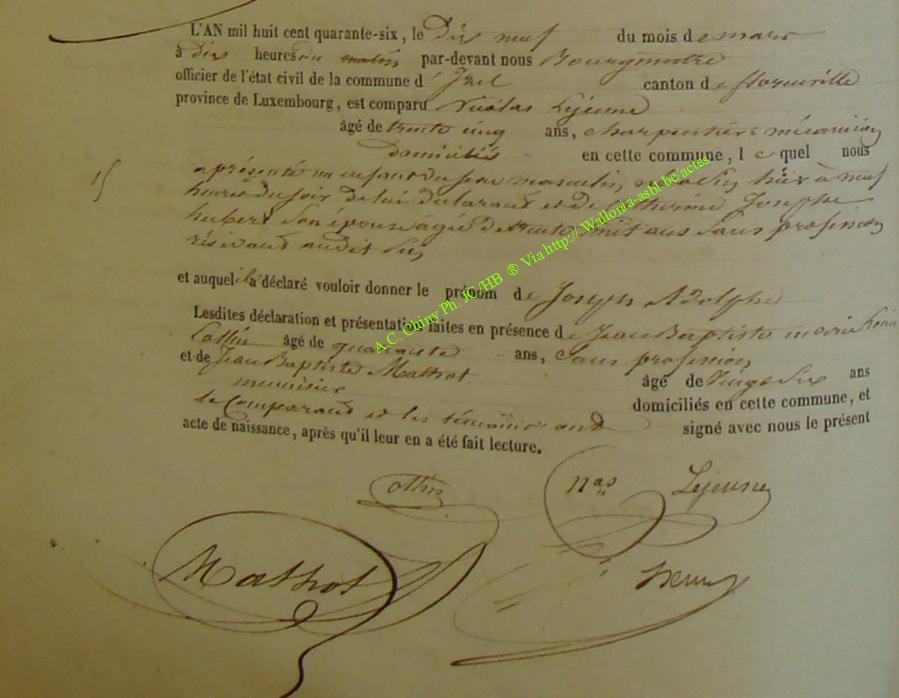 L'AN mil huit cent quarante-six, le Dix neuf du mois de mars
à dix heures du matin par-devant nous Bourgmestre
officier de l'état civil de la commune d'Izel canton de florenville
province de Luxembourg, est comparu Nicolas Lejeune
âgé de trente cinq ans, charpentier mécanicien
Domicilié en cette commune, lequel nous
15 a présenté un enfant du sexe masculin, hier à neuf
heures du soir de lui déclarant et de Catherine Josephe
hubert Son épouse agée de trente huit ans Sans profession
résidant audit
et auquel il a déclaré vouloir donner le prénom de Joseph Adolphe
Lesdites déclaration et présentation faites en présence de Jean Baptiste marie
âgé de quarante ans, Sans profession
et de Jean Baptiste Mathot âgé de Vingt Six ans
menuisier domiciliés en cette commune, et
le Comparant et les témoins ont signé avec nous le présent
acte de naissance, après qu'il leur en a été fait lecture.
Nas Lejeune
Mathot
A.C. Chiny Ph. JC/HB ® Via http:// Wallonia-asbl.be/actes